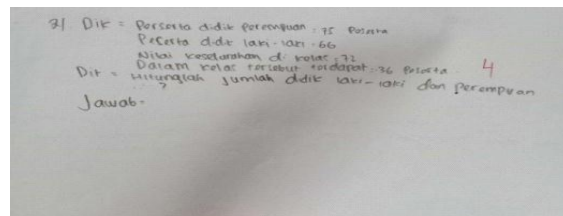 21 Dik = Perserta didik perempuan : 75 Peserta
Peserta didik laki-laki : 66
Nilai keseluruhan di kelas : 72
Dalam kelas tersebut terdapat : 36 Peserta 4
Dit = Hitunglah jumlah didik laki-laki dan perempuan
?
Jawab =